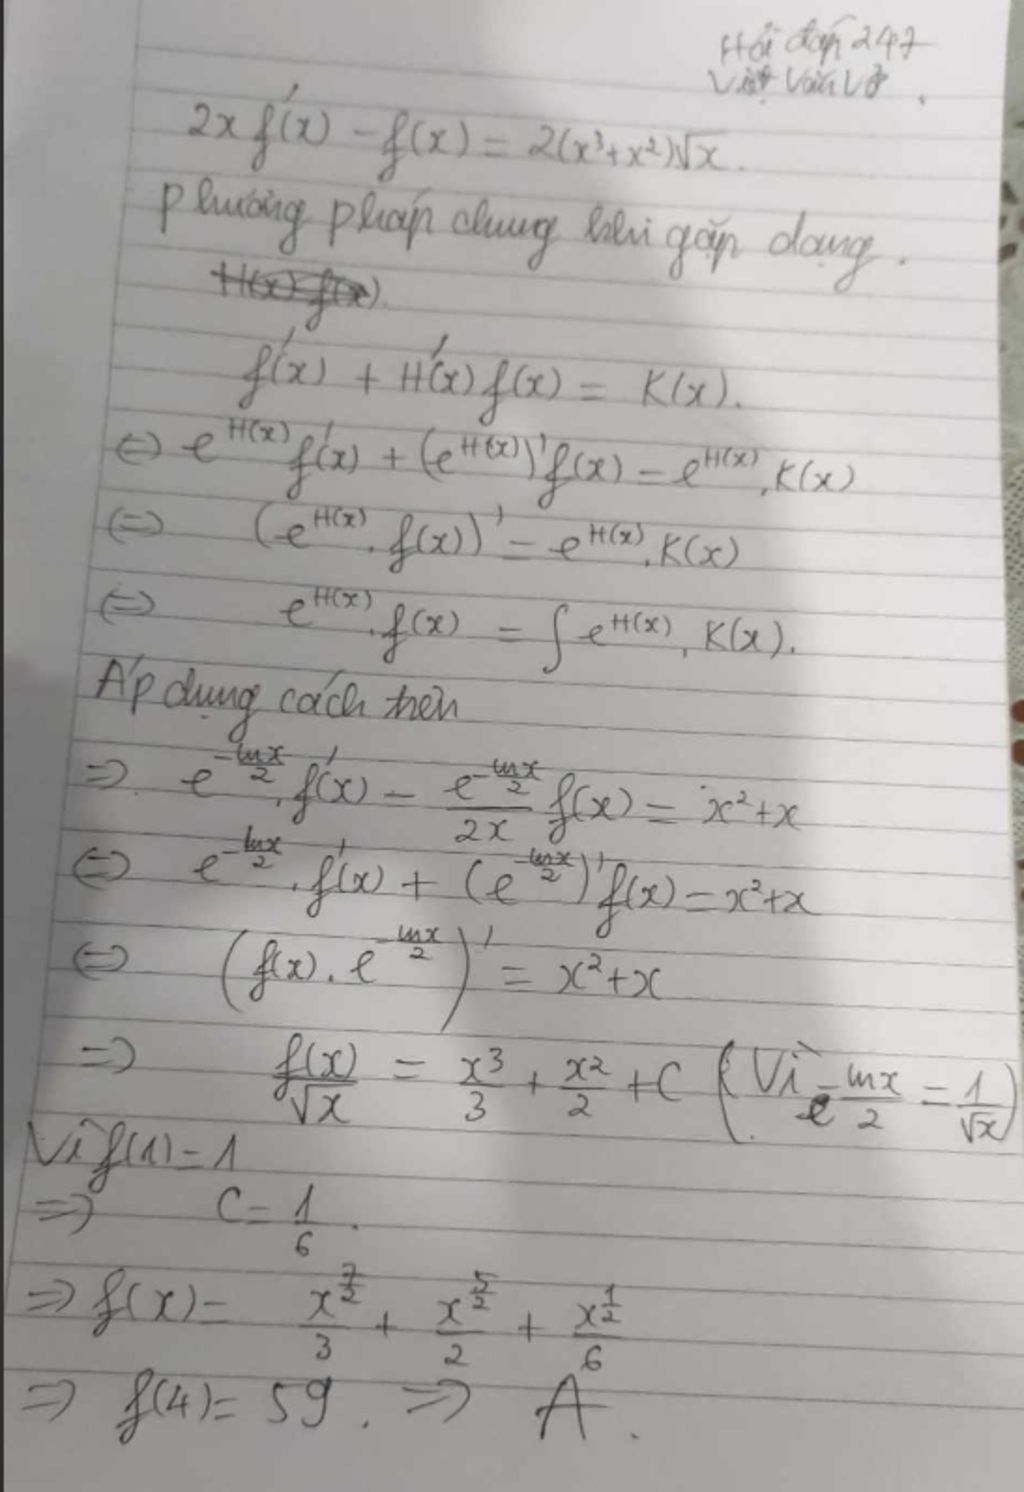 Hỏi đáp 247
Viết Vào Vở.
2x f'(x) - f(x) = 2(x³+x²)√x.
Phương pháp chung khi gặp dạng.
H(x) f(x)
f'(x) + H'(x) f(x) = K(x).
⇔ e^{H(x)} f'(x) + (e^{H(x)})' f(x) = e^{H(x)}.K(x)
⇔ (e^{H(x)}.f(x))' = e^{H(x)}.K(x)
⇔ e^{H(x)}.f(x) = ∫e^{H(x)}.K(x).
Áp dụng cách trên
⇒ e^{-lnx/2}.f'(x) - e^{-lnx/2}/2x f(x) = x²+x
⇔ e^{-lnx/2}.f'(x) + (e^{-lnx/2})' f(x) = x²+x
⇔ (f(x).e^{-lnx/2})' = x²+x
⇒ f(x)/√x = x³/3 + x²/2 + C (Vì e^{-lnx/2} = 1/√x)
Vì f(1)=1
⇒ C = 1/6.
⇒ f(x) = x^{7/2}/3 + x^{5/2}/2 + x^{1/2}/6
⇒ f(4) = 59. ⇒ A.